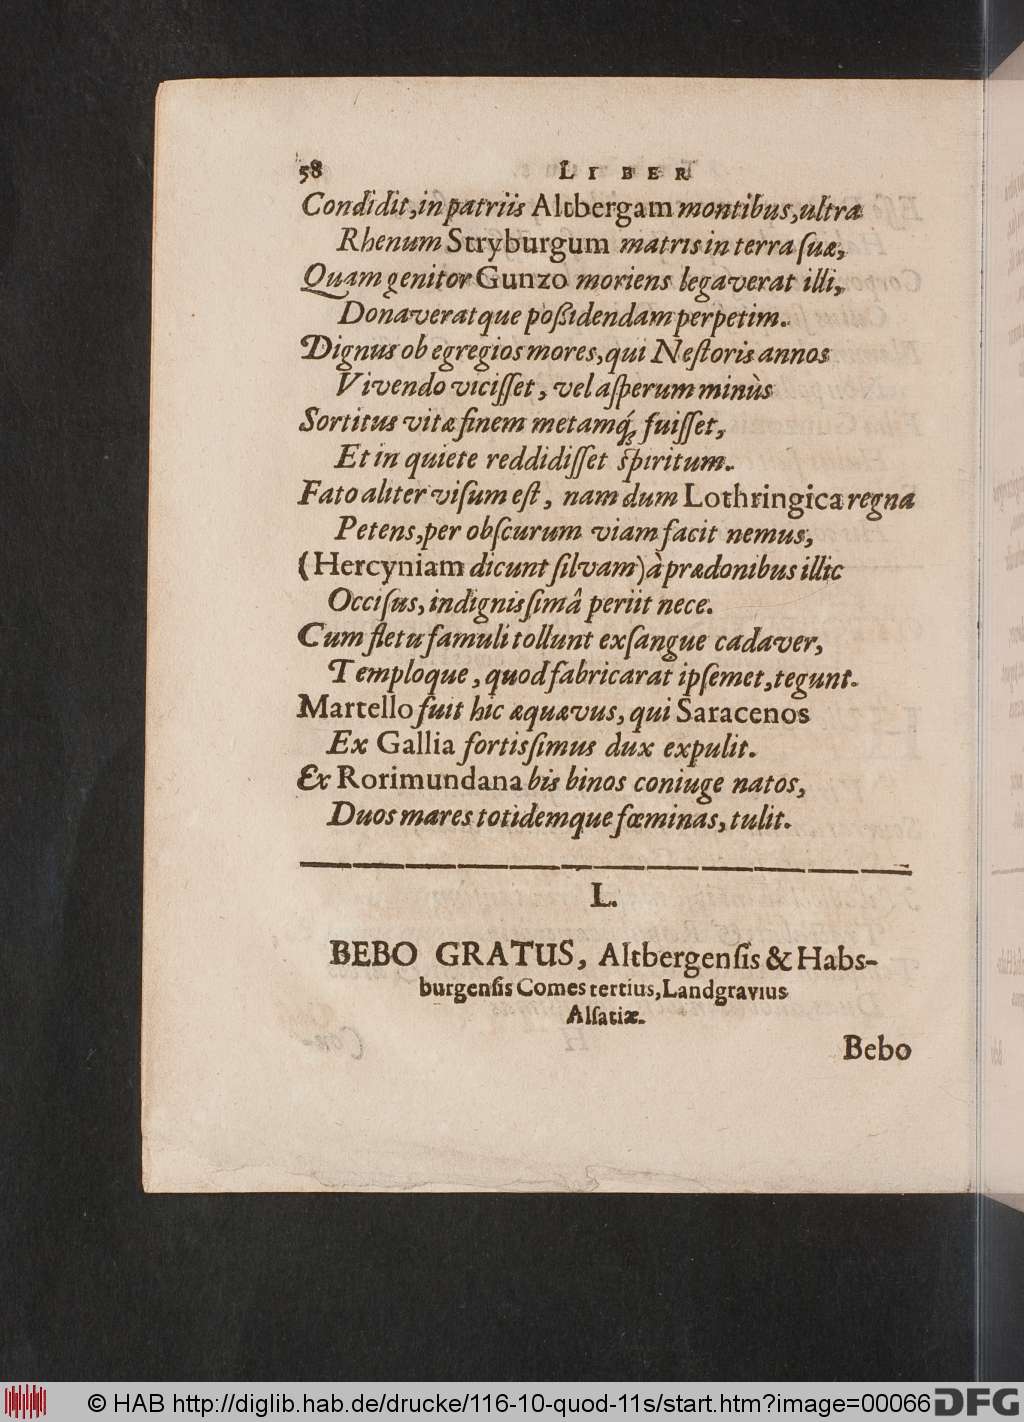 58 LIBER
Condidit, in patriis Altbergam montibus, ultra
Rhenum Stryburgum matris in terra ſuæ,
Quam genitor Gunzo moriens legaverat illi,
Donaveratque poßidendam perpetim.
Dignus ob egregios mores, qui Neſtoris annos
Vivendo viciſſet, vel aſperum minùs
Sortitus vitæ finem metamq́; fuiſſet,
Et in quiete reddidiſſet ſpiritum.
Fato aliter viſum eſt, nam dum Lothringica regna
Petens, per obſcurum viam facit nemus,
(Hercyniam dicunt ſilvam) à prædonibus illic
Occiſus, indignisſimâ periit nece.
Cum fletu famuli tollunt exſangue cadaver,
Temploque, quod fabricarat ipſemet, tegunt.
Martello fuit hic æquævus, qui Saracenos
Ex Gallia fortisſimus dux expulit.
Ex Rorimundana bis binos coniuge natos,
Duos mares totidemque fœminas, tulit.
L.
BEBO GRATUS, Altbergenſis & Habs-
burgenſis Comes tertius, Landgravius
Alſatiæ.
Bebo
© HAB http://diglib.hab.de/drucke/116-10-quod-11s/start.htm?image=00066 DFG